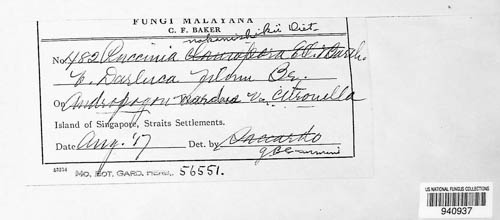 FUNGI MALAYANA
C. F. BAKER
nakanishikii Diet.
No. 482 Puccinia
& Darluca filum By.
On Andropogon Nardus v. Citronella
Island of Singapore, Straits Settlements.
Date Aug. '17 Det. by Saccardo
MO. BOT. GARD. HERB. 56551.
US NATIONAL FUNGUS COLLECTIONS
940937